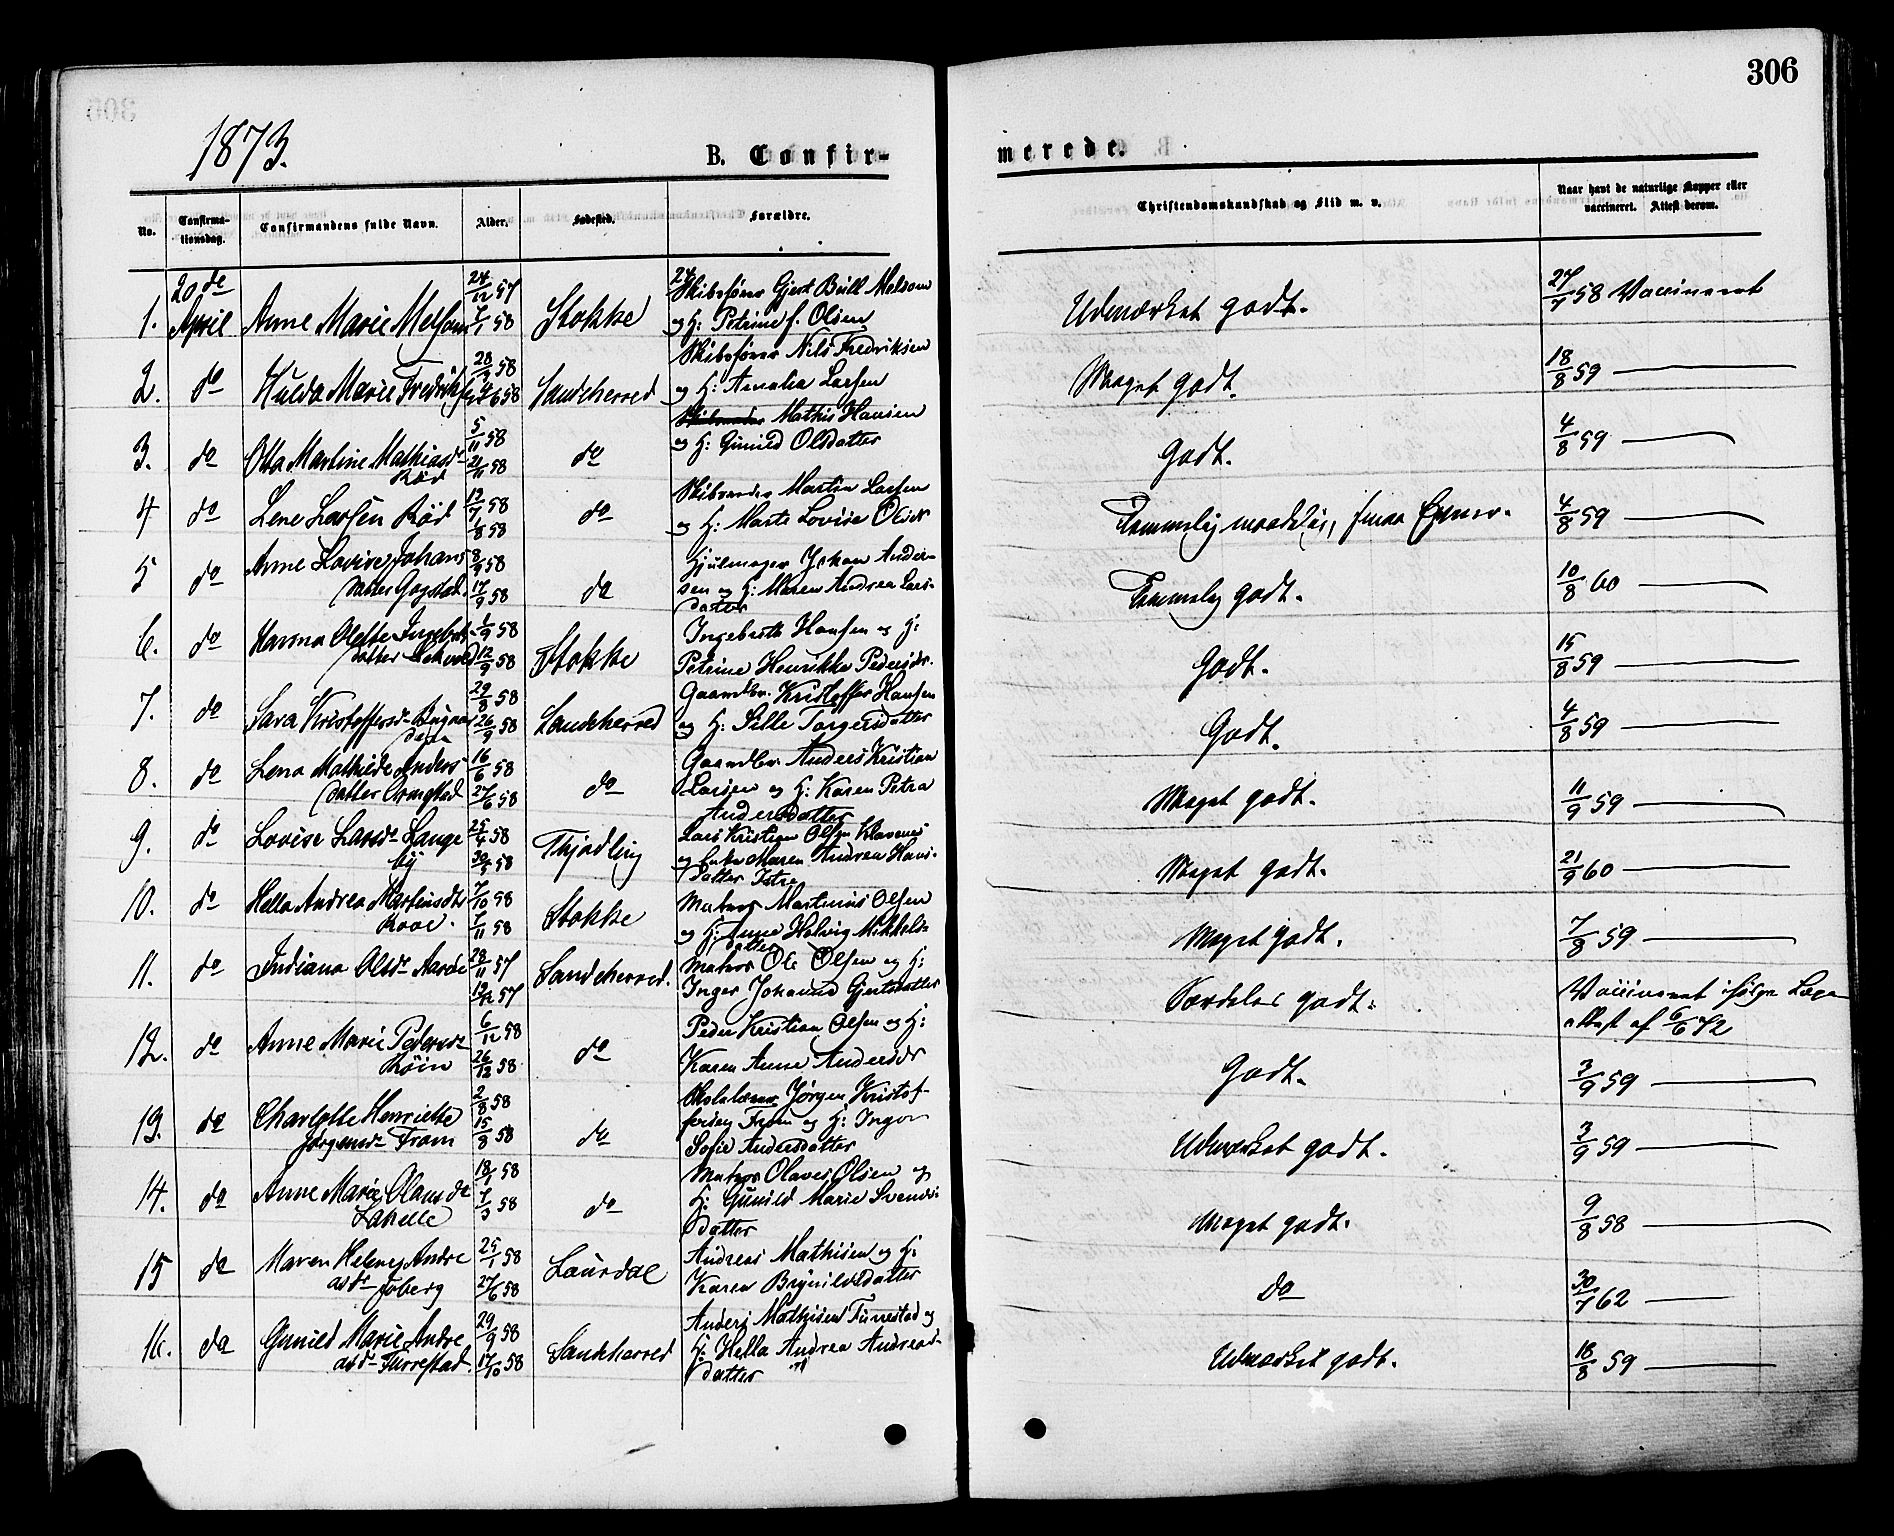 306
1873.
B. Confir-
merede.
No.
Confirma-
tionsdag.
Confirmandens fulde Navn.
Alder.
Fødested.
Forældre.
Christendomskundskab og Flid m. v.
Naar havt de naturlige Kopper eller
vaccineret. Attest derom.
1. 20de April Anne Marie Melsom 24/12 57 7/1 58 Stokke
Skibsfører Gjert Bull Melsom
og H: Petrine f. Olsen
Udmærket godt. 27/7 58 Vaccineret
2. do Hulda Marie Fredriks 28/3 58 58 Sandeherred
Skibsfører Nils Fredriksen
og H: Amalia Larsen
Meget godt. 18/8 59
3. do Otta Martine Mathiasdr
Rød 5/11 58 21/11 58 do
Mathis Hansen
og H: Gunild Olsdatter
Godt. 4/8 59
4 do Lene Larsen Rød 12/7 58 1/8 58 do
Martin Larsen
og H: Marte Lovise Olsdr
Temmelig maadelig, smaa Evner. 4/8 59
5 do Anne Lovise Johans
datter Gogstad. 8/9 58 17/9 58 do
Hjulmager Johan Ander-
sen og H: Maren Andrea Lars-
datter
Temmelig godt. 10/8 60
6. do Olette Ingebret
datter 1/9 58 12/9 58 Stokke
Ingebrett Hansen og H:
Petrine Henrikke Pedersdr.
Godt. 15/8 59
7. do Sara Kristoffersdr 29/8 58 26/9 58 Sandeherred
Gaardbr. Kristoffer Hansen
og H: Sille Torgersdatter
Godt. 4/8 59
8. do Lena Mathilde Anders-
datter Ormestad 16/6 58 27/6 58 do
Gaardbr. Anders Kristian
Larsen og H: Karen Petra
Andersdatter
Meget godt. 11/9 59
9. do Lovise Larsdr Lange
by 25/4 58 30/5 58 Thjødling
Lars Kristian Olsen Klavenes
og Maren Andrea Hans-
datter Istre
Meget godt. 21/9 60
10. do Hella Andrea Martinsdtr
7/10 58 7/11 58 Stokke
Matros Martinius Olsen
og H: Anne Helvig Mikkels-
datter
Meget godt. 7/8 59
11. do Indiana Olsdr 28/11 57 57 Sandeherred.
Matros Ole Olsen og H:
Inger Johanne Gjertsdatter
Særdeles godt. Vaccineret ifølge Læge
attest af 6/6 72
12. do Anne Marie Pedersdr
Röin 6/12 58 26/12 58 do
Peder Kristian Olsen og H:
Karen Anne Andersdr
Godt. 3/9 59
13. do Charlotte Henriette
Jørgensdr Fram 2/8 58 15/8 58 do
Skolelærer Jørgen Kristof-
fersen Fram og H: Inger
Sofie Andersdatter
Udmærket godt. 3/9 59
14. do Anne Marie Olausdr
18/1 58 7/3 58 do
Matros Olaves Olsen og
H: Gunild Marie Svends-
datter
Meget godt. 9/8 58
15 do Maren Helene Andre
asdr Foberg 25/1 58 27/6 58 Laurdal
Andreas Mathisen og H:
Karen Brynildsdatter
do 30/7 62
16. do Gunild Marie Andre
asdr Furrestad. 29/9 58 17/10 58 Sandeherred
Anders Mathisen Furrestad og
H: Hella Andrea Andreas-
datter
Udmærket godt. 18/8 59